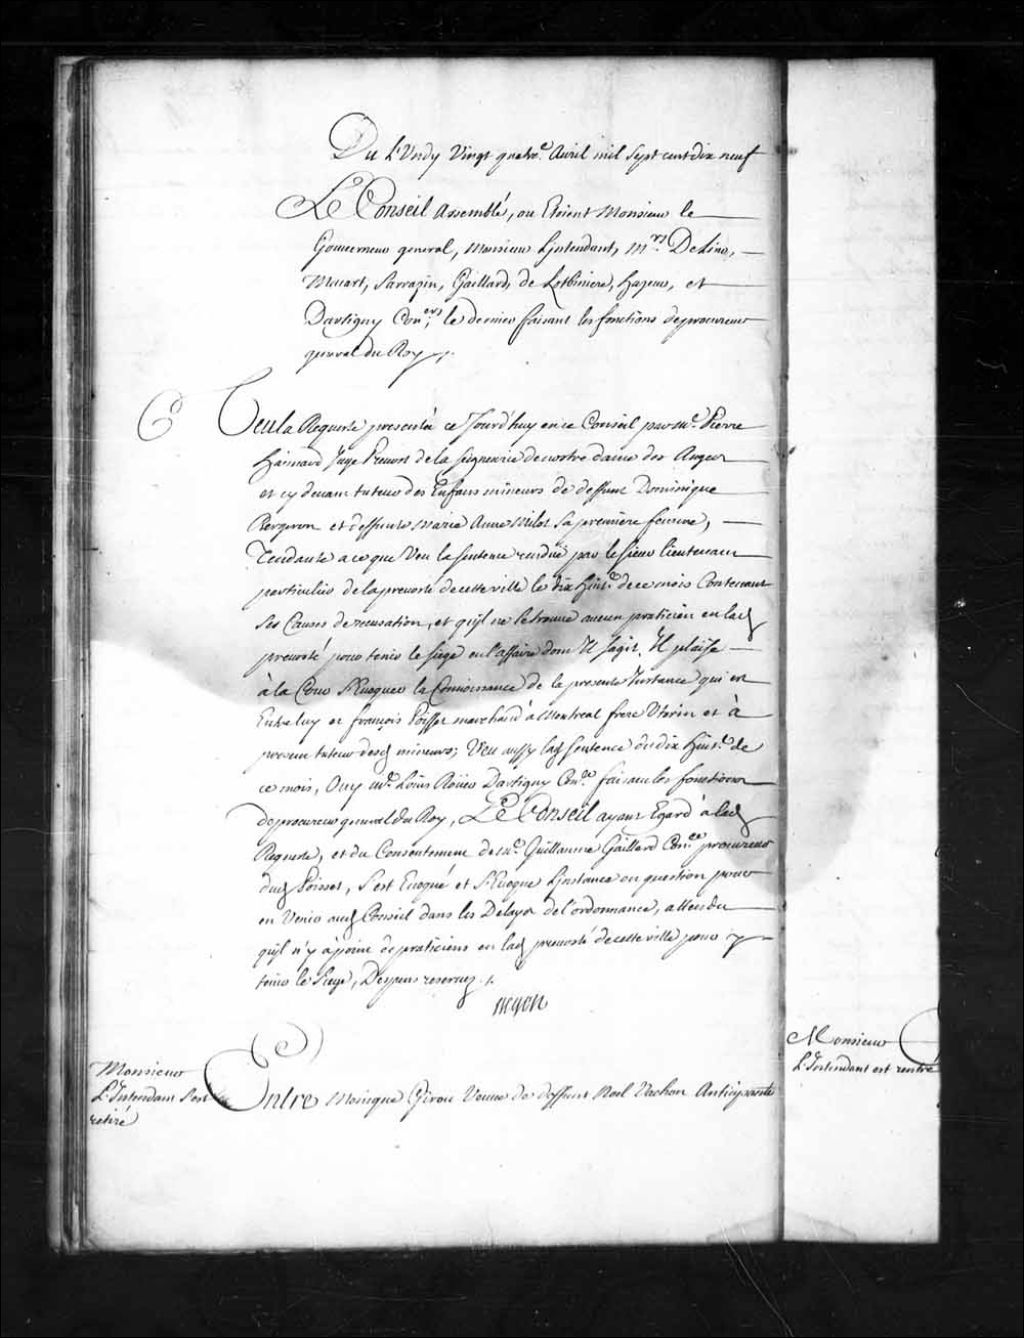 Du Lundy Vingt quatre.^e Auril mil Sept cent dix neuf
Le Conseil assemblé, ou Etoient Monsieur le
Gouuerneur general, Monsieur L'jntendant, M.^rs Delino,
Macart, Sarrazin, Gaillard, de Lotbiniere, hazeur, et
Dartigny Con.^ers, le dernier faisant les fonctions de procureur
general du Roy ./.
Veu la Requeste presentée ce Jourd'huy en ce Conseil par M.^e Pierre
haimard Juge Preuost de la seigneurie de nostre dame des Anges
et cy deuant tuteur des Enfans mineurs de deffunt Dominique
Bergeron et deffunte Marie Anne Milot sa premiere femme,
Tendante a ce que Veu la sentence rendüe par le sieur lieutenant
particulier de la preuosté de cette ville le dix huit.^e de ce mois Contenant
ses Causes de recusation, et qu'jl ne se trouue aucun praticien en lad
preuosté pour tenir le siege en l'affaire dont Il s'agit, Il plaise
à la Cour Euoquer la Connoissance de la presente Instance qui est
Entre luy et françois Poisset marchand à Montreal frere Vterin et à
present tuteur desd mineurs; Veu aussy lad sentence du dix huit.^e de
ce mois, Ouy M.^e Louis Roüer Dartigny Con.^er faisant les fonctions
de procureur general du Roy, Le Conseil ayant Egard à lad
Requeste, et du Consentement de M.^e Guillaume Gaillard Con.^er procureur
dud Poisset, s'est Euoqué et Euoque L'jnstance en question pour
en Venir aud Conseil dans les Delays de l'ordonnance, attendu
qu'jl n'y a point de praticiens en lad preuosté de cette ville pour y
tenir le siege, Despens reseruez ./.
Begon
Monsieur
L'Intendant s'est
retiré
Entre Monique Girou Veuue de deffunt Noel Vachon Anticipante
Monsieur
L'Intendant est rentré